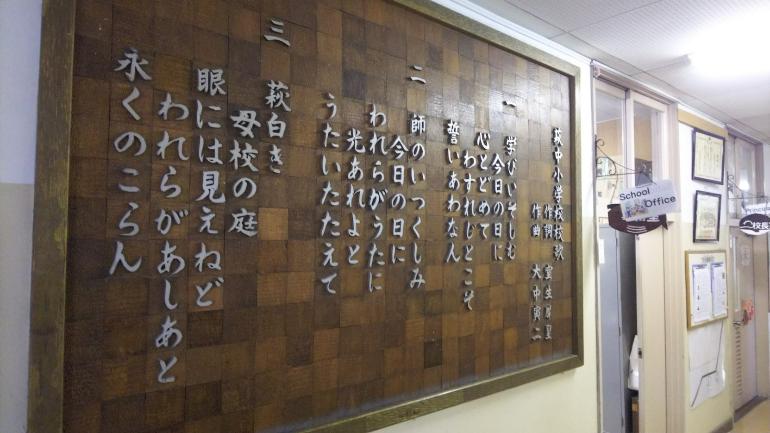 萩中小学校校歌
作詞 室生犀星
作曲 大中寅二
一 学びいそしむ
今日の日に
心とどめて
わすれじとこそ
誓いあわなん
二 師のいつくしみ
今日の日に
われらがうたに
光あれよと
うたいたたえて
三 萩白き
母校の庭
眼には見えねど
われらがあしあと
永くのこらん
School
Office
校長